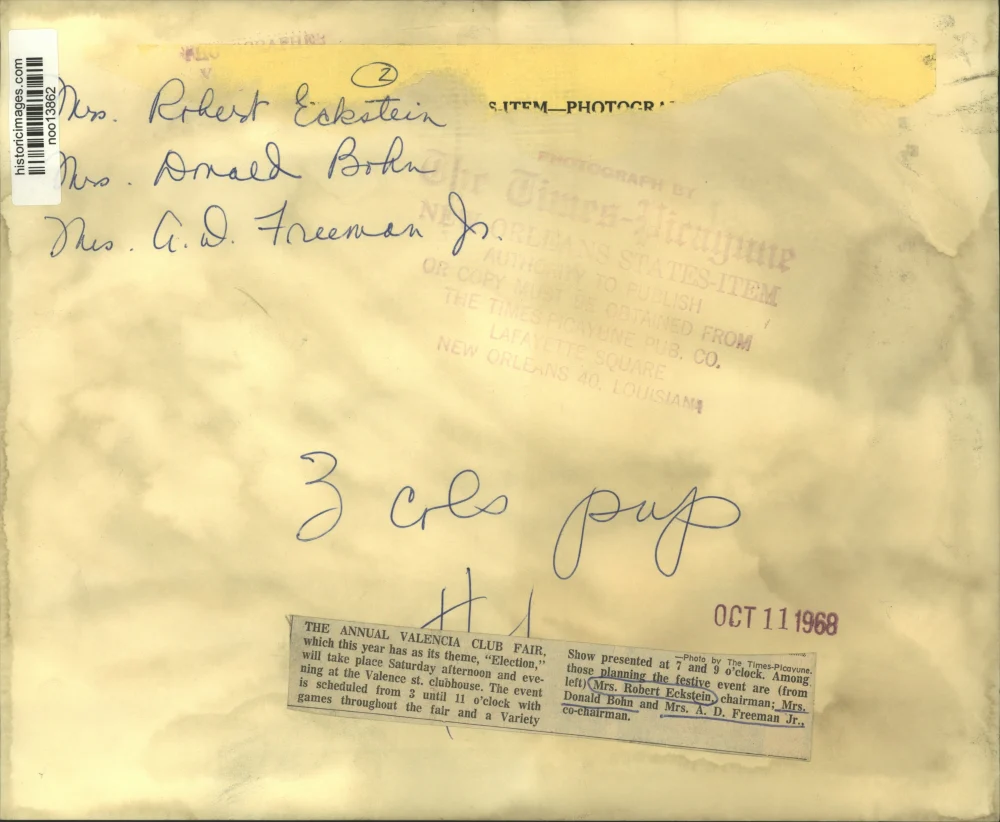 historicimages.com
noo13862
2
S-ITEM—PHOTOGRA
Mrs. Robert Eckstein
Mrs. Donald Bohn
Mrs. A. D. Freeman Jr.
PHOTOGRAPH BY
The Times-Picayune
NEW ORLEANS STATES-ITEM
AUTHORITY TO PUBLISH
OR COPY MUST BE OBTAINED FROM
THE TIMES-PICAYUNE PUB. CO.
LAFAYETTE SQUARE
NEW ORLEANS 40, LOUISIANA
3 cols pup
OCT 11 1968
THE ANNUAL VALENCIA CLUB FAIR,
which this year has as its theme, "Election,"
will take place Saturday afternoon and eve-
ning at the Valence st. clubhouse. The event
is scheduled from 3 until 11 o'clock with
games throughout the fair and a Variety
—Photo by The Times-Picayune.
Show presented at 7 and 9 o'clock. Among
those planning the festive event are (from
left) Mrs. Robert Eckstein, chairman; Mrs.
Donald Bohn and Mrs. A. D. Freeman Jr.,
co-chairman.